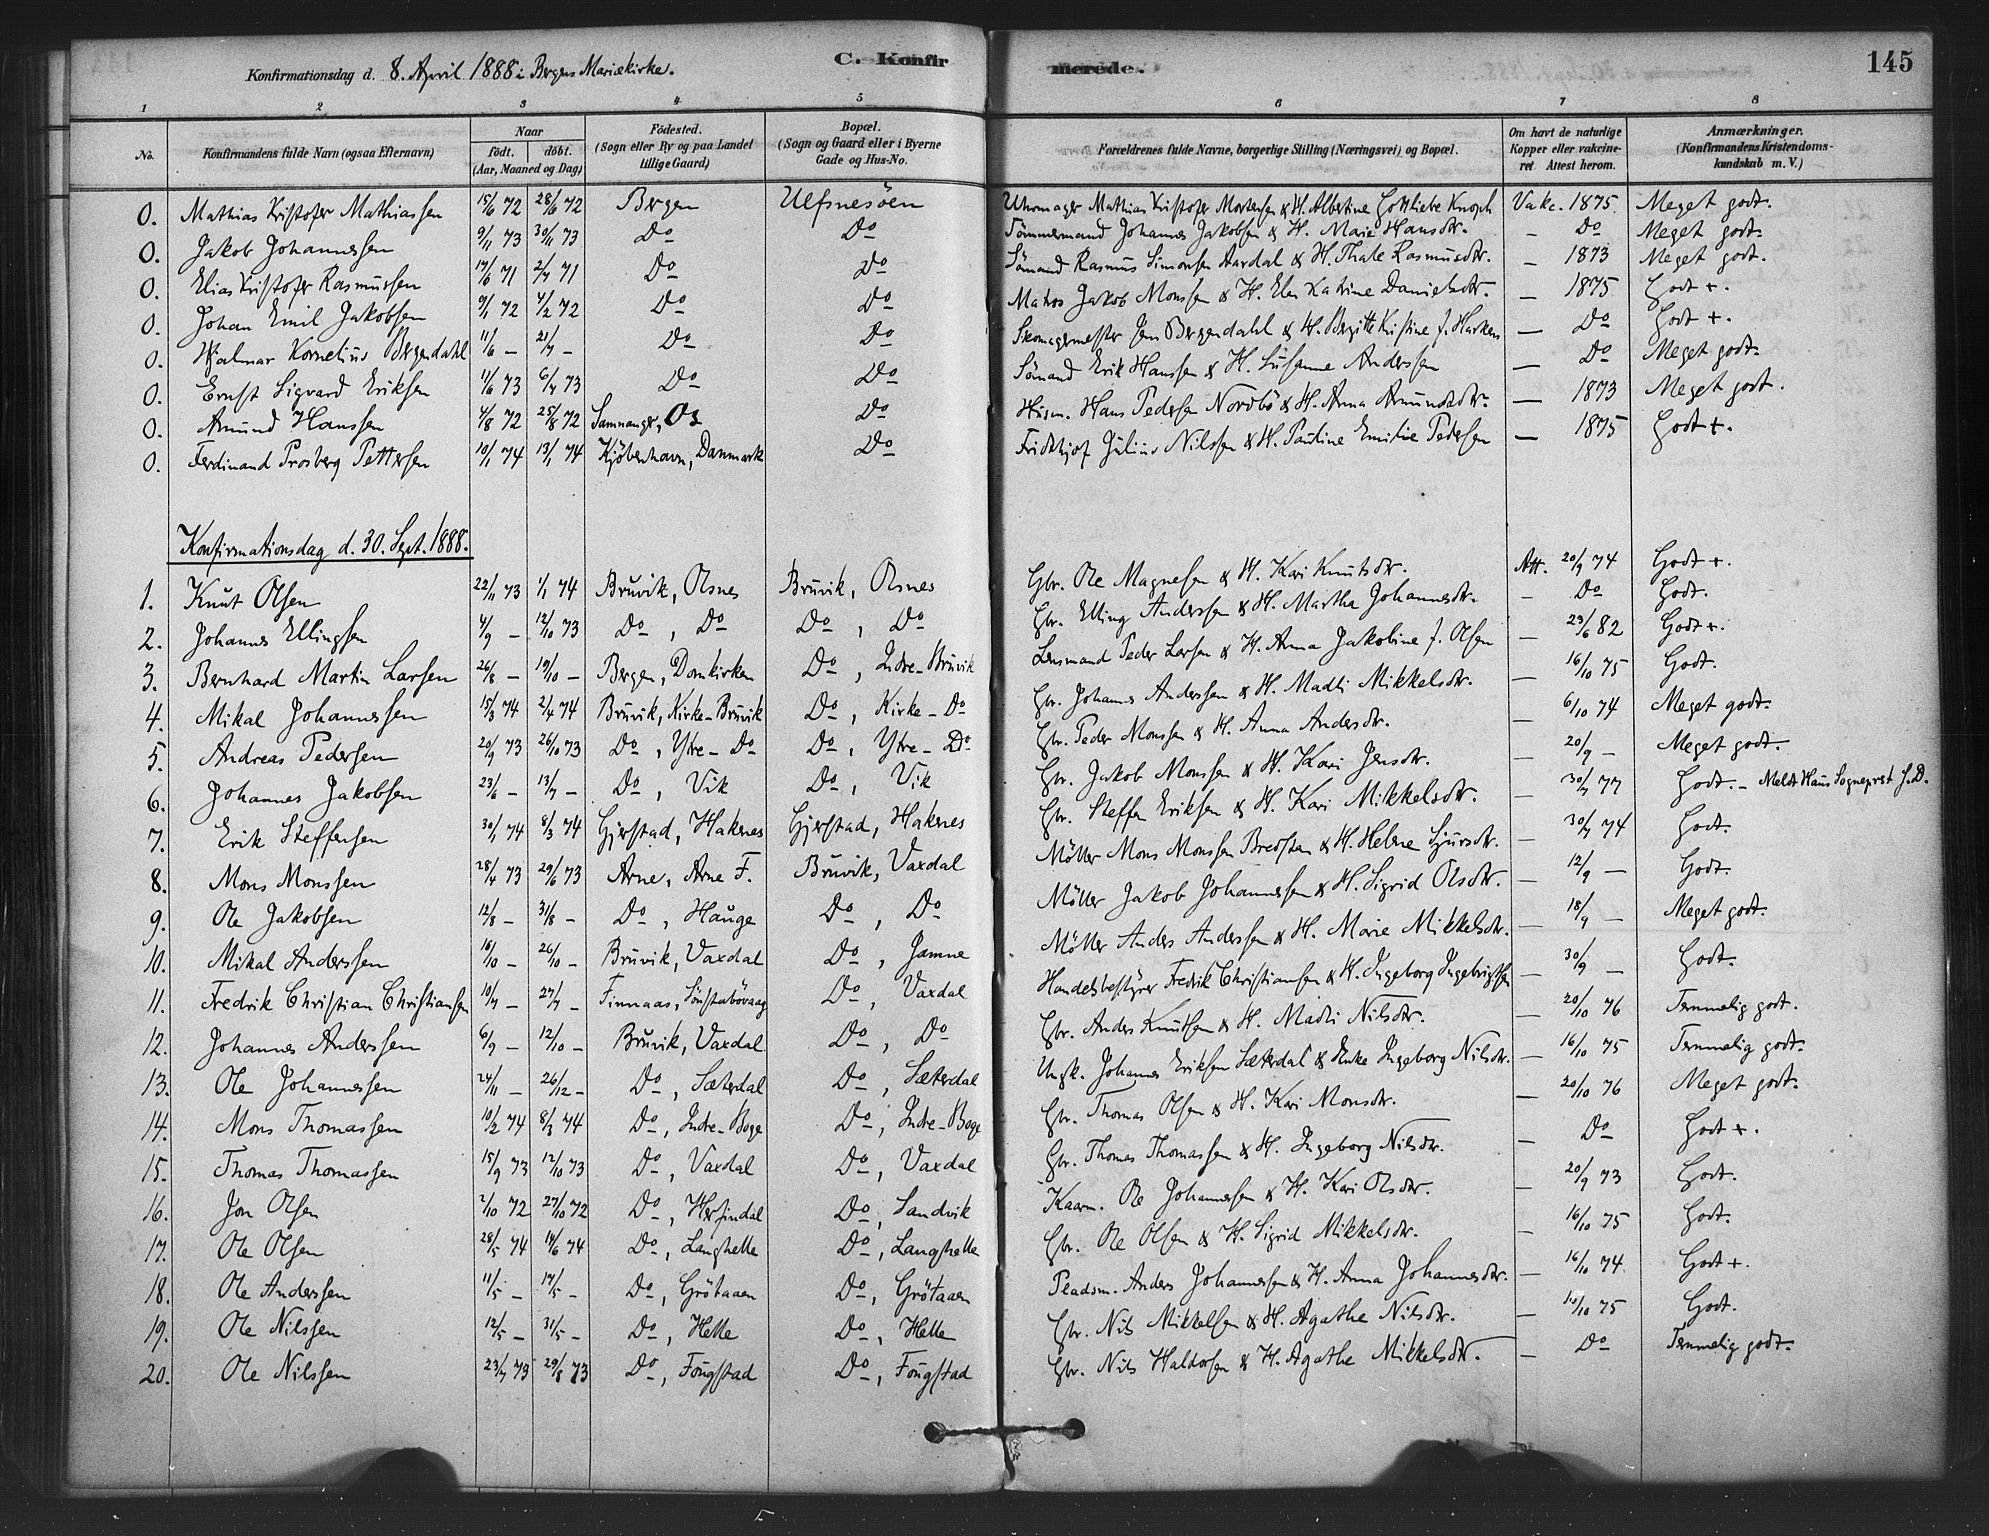 Konfirmationsdag d. 8. April 1888 i Bergens Mariækirke. C. Konfirmerede. 145
1 2 3 4 5 6 7 8
No. Konfirmandens fulde Navn (ogsaa Efternavn) Naar født. døbt. (Aar, Maaned og Dag) Fødested. (Sogn eller By og paa Landet tillige Gaard) Bopæl. (Sogn og Gaard eller i Byerne Gade og Hus-No.) Forældrenes fulde Navne, borgerlige Stilling (Næringsvei) og Bopæl. Om havt de naturlige Kopper eller vakcineret. Attest herom. Anmærkninger. (Konfirmandens Kristendomskundskab m. V.)
0. Mathias Kristofer Mathiassen 15/6 72 28/6 72 Bergen Ulfsnesöen Uhrmager Mathias Kristofer Mortensen & H. Albertine Gottliebe Knoph Vakc. 1875 Meget godt.
0. Jakob Johannessen 9/11 73 30/11 73 Do Do Tömmermand Johannes Jakobsen & H. Marie Hansdtr. – Do Meget godt.
0. Elias Kristofer Rasmussen 17/6 71 2/7 71 Do Do Sömand Rasmus Simonsen Aardal & H. Thale Rasmusdtr. – 1873 Meget godt.
0. Johan Emil Jakobsen 9/1 72 4/2 72 Do Do Matros Jakob Monsen & H. Elen Katrine Danielsdtr. – 1875 Godt +.
0. Hjalmar Kornelius Bergendahl 11/6 – 21/7 – Do Do Skomagermester Jens Bergendahl & H. Bergitte Kristine f. Harkens – Do Godt +.
0. Ernst Sigvard Eriksen 11/6 73 6/7 73 Do Do Sömand Erik Hanssen & H. Susanne Anderssen – Do Meget godt.
0. Amund Hanssen 4/8 72 25/8 72 Samnanger, Os Do Husm. Hans Pedersen Nordbö & H. Anna Amundsdtr. – 1873 Meget godt.
0. Ferdinand Prosberg Pettersen 10/1 74 13/1 74 Kjöbenhavn, Danmark Do Fridthjof Julius Nilssen & H. Pauline Emilie Pedersen – 1875 Godt +.
Konfirmationsdag d. 30. Sept. 1888.
1. Knut Olsen 22/11 73 1/1 74 Bruvik, Olsnes Bruvik, Olsnes Gbr. Ole Magnesen & H. Kari Knutsdtr. Att. 20/9 74 Godt +.
2. Johannes Ellingsen 4/9 – 12/10 73 Do, Do Do, Do Gbr. Elling Anderssen & H. Martha Johannesdtr. – Do Godt.
3. Bernhard Martin Larsen 26/8 – 19/10 – Bergen, Domkirken Do, Indre-Bruvik Lensmand Peder Larsen & H. Anna Jakobine f. Olsen – 23/6 82 Godt +.
4. Mikal Johannessen 15/3 74 2/4 74 Bruvik, Kirke-Bruvik Do, Kirke-Do Gbr. Johannes Anderssen & H. Madli Mikkelsdtr. – 16/10 75 Godt.
5. Andreas Pedersen 20/9 73 26/10 73 Do, Ytre-Do Do, Ytre-Do Gbr. Peder Monssen & H. Anna Andersdtr. – 6/10 74 Meget godt.
6. Johannes Jakobsen 23/6 – 13/7 – Do, Vik Do, Vik Gbr. Jakob Monssen & H. Kari Jensdtr. – 20/9 – Meget godt.
7. Erik Steffensen 30/1 74 8/3 74 Gjerstad, Haknes Gjerstad, Haknes Gbr. Steffen Eriksen & H. Kari Mikkelsdtr. – 30/7 77 Godt. – Meldt Haus Sogneprest s. D.
8. Mons Monssen 28/4 73 29/6 73 Arne, Arne F. Bruvik, Vaxdal Möller Mons Monssen Bredsten & H. Helene Sjursdtr. – 30/7 74 Godt.
9. Ole Jakobsen 12/8 – 31/8 – Do, Hauge Do, Do Möller Jakob Johannessen & H. Sigrid Olsdtr. – 12/9 – Godt.
10. Mikal Anderssen 16/10 – 26/10 – Bruvik, Vaxdal Do, Jamne Möller Anders Anderssen & H. Marie Mikkelsdtr. – 18/9 – Meget godt.
11. Fredrik Christian Christiansen 10/7 – 27/7 – Finnaas, Do, Vaxdal Handelsbestyrer Fredrik Christiansen & H. Ingeborg Ingebrigtsen – 30/9 – Godt.
12. Johannes Anderssen 6/9 – 12/10 – Bruvik, Vaxdal Do, Do Gbr. Anders Knutsen & H. Madli Nilsdtr. – 20/10 76 Temmelig godt.
13. Ole Johannessen 24/11 – 26/12 – Do, Sæterdal Do, Sæterdal Ungk. Johannes Eriksen Sæterdal & Enke Ingeborg Nilsdtr. – 16/10 75 Temmelig godt.
14. Mons Thomassen 10/2 74 8/3 74 Do, Indre-Boge Do, Indre-Boge Gbr. Thomas Olsen & H. Kari Monsdtr. – 20/10 76 Meget godt.
15. Thomas Thomassen 15/9 73 12/10 73 Do, Vaxdal Do, Vaxdal Gbr. Thomas Thomassen & H. Ingeborg Nilsdtr. – Do Godt +.
16. Jon Olsen 2/10 72 27/10 72 Do, Herfindal Do, Sandvik Kaarm. Ole Johannessen & H. Kari Olsdtr. – 20/9 73 Godt.
17. Ole Olsen 28/5 74 14/6 74 Do, Langhelle Do, Langhelle Gbr. Ole Olsen & H. Sigrid Mikkelsdtr. – 16/10 75 Godt.
18. Ole Anderssen 11/5 – 17/5 – Do, Grötaaen Do, Grötaaen Pladsm. Anders Johannessen & H. Anna Johannesdtr. – 16/10 74 Godt +.
19. Ole Nilssen 12/5 – 31/5 – Do, Helle Do, Helle Gbr. Nils Mikkelsen & H. Agathe Nilsdtr. – 10/10 75 Godt.
20. Ole Nilssen 23/7 73 29/8 73 Do, Fougstad Do, Fougstad Gbr. Nils Haldorsen & H. Agathe Mikkelsdtr. – Do Temmelig godt.